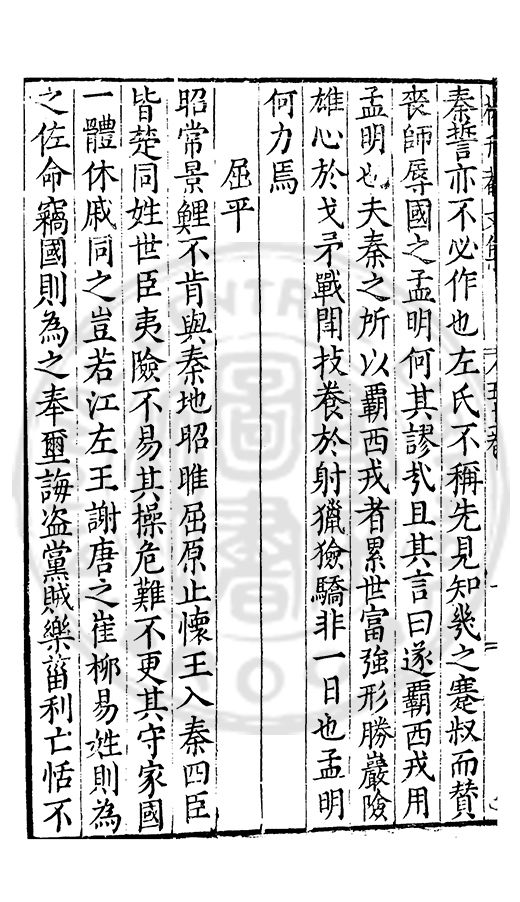 秦誓亦不必作也左氏不稱先見知幾之蹇叔而贊
喪師辱國之孟明何其謬㢤且其言曰遂霸西戎用
孟明也夫秦之所以霸西戎者累世富強形勝巖險
雄心於戈矛戰鬥技養於射獵獫驕非一日也孟明
何力焉
屈平
昭常景鯉不肯與秦地昭睢屈原止懷王入秦四臣
皆楚同姓世臣夷險不易其操危難不更其守家國
一體休戚同之豈若江左王謝唐之崔柳易姓則為
之佐命竊國則為之奉璽誨盗黨賊樂菑利亡恬不